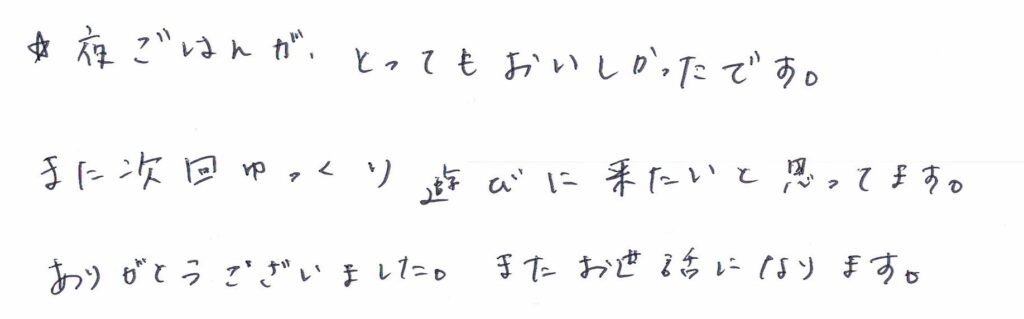 ☆夜ごはんが、とってもおいしかったです。
また次回ゆっくり遊びに来たいと思ってます。
ありがとうございました。またお世話になります。